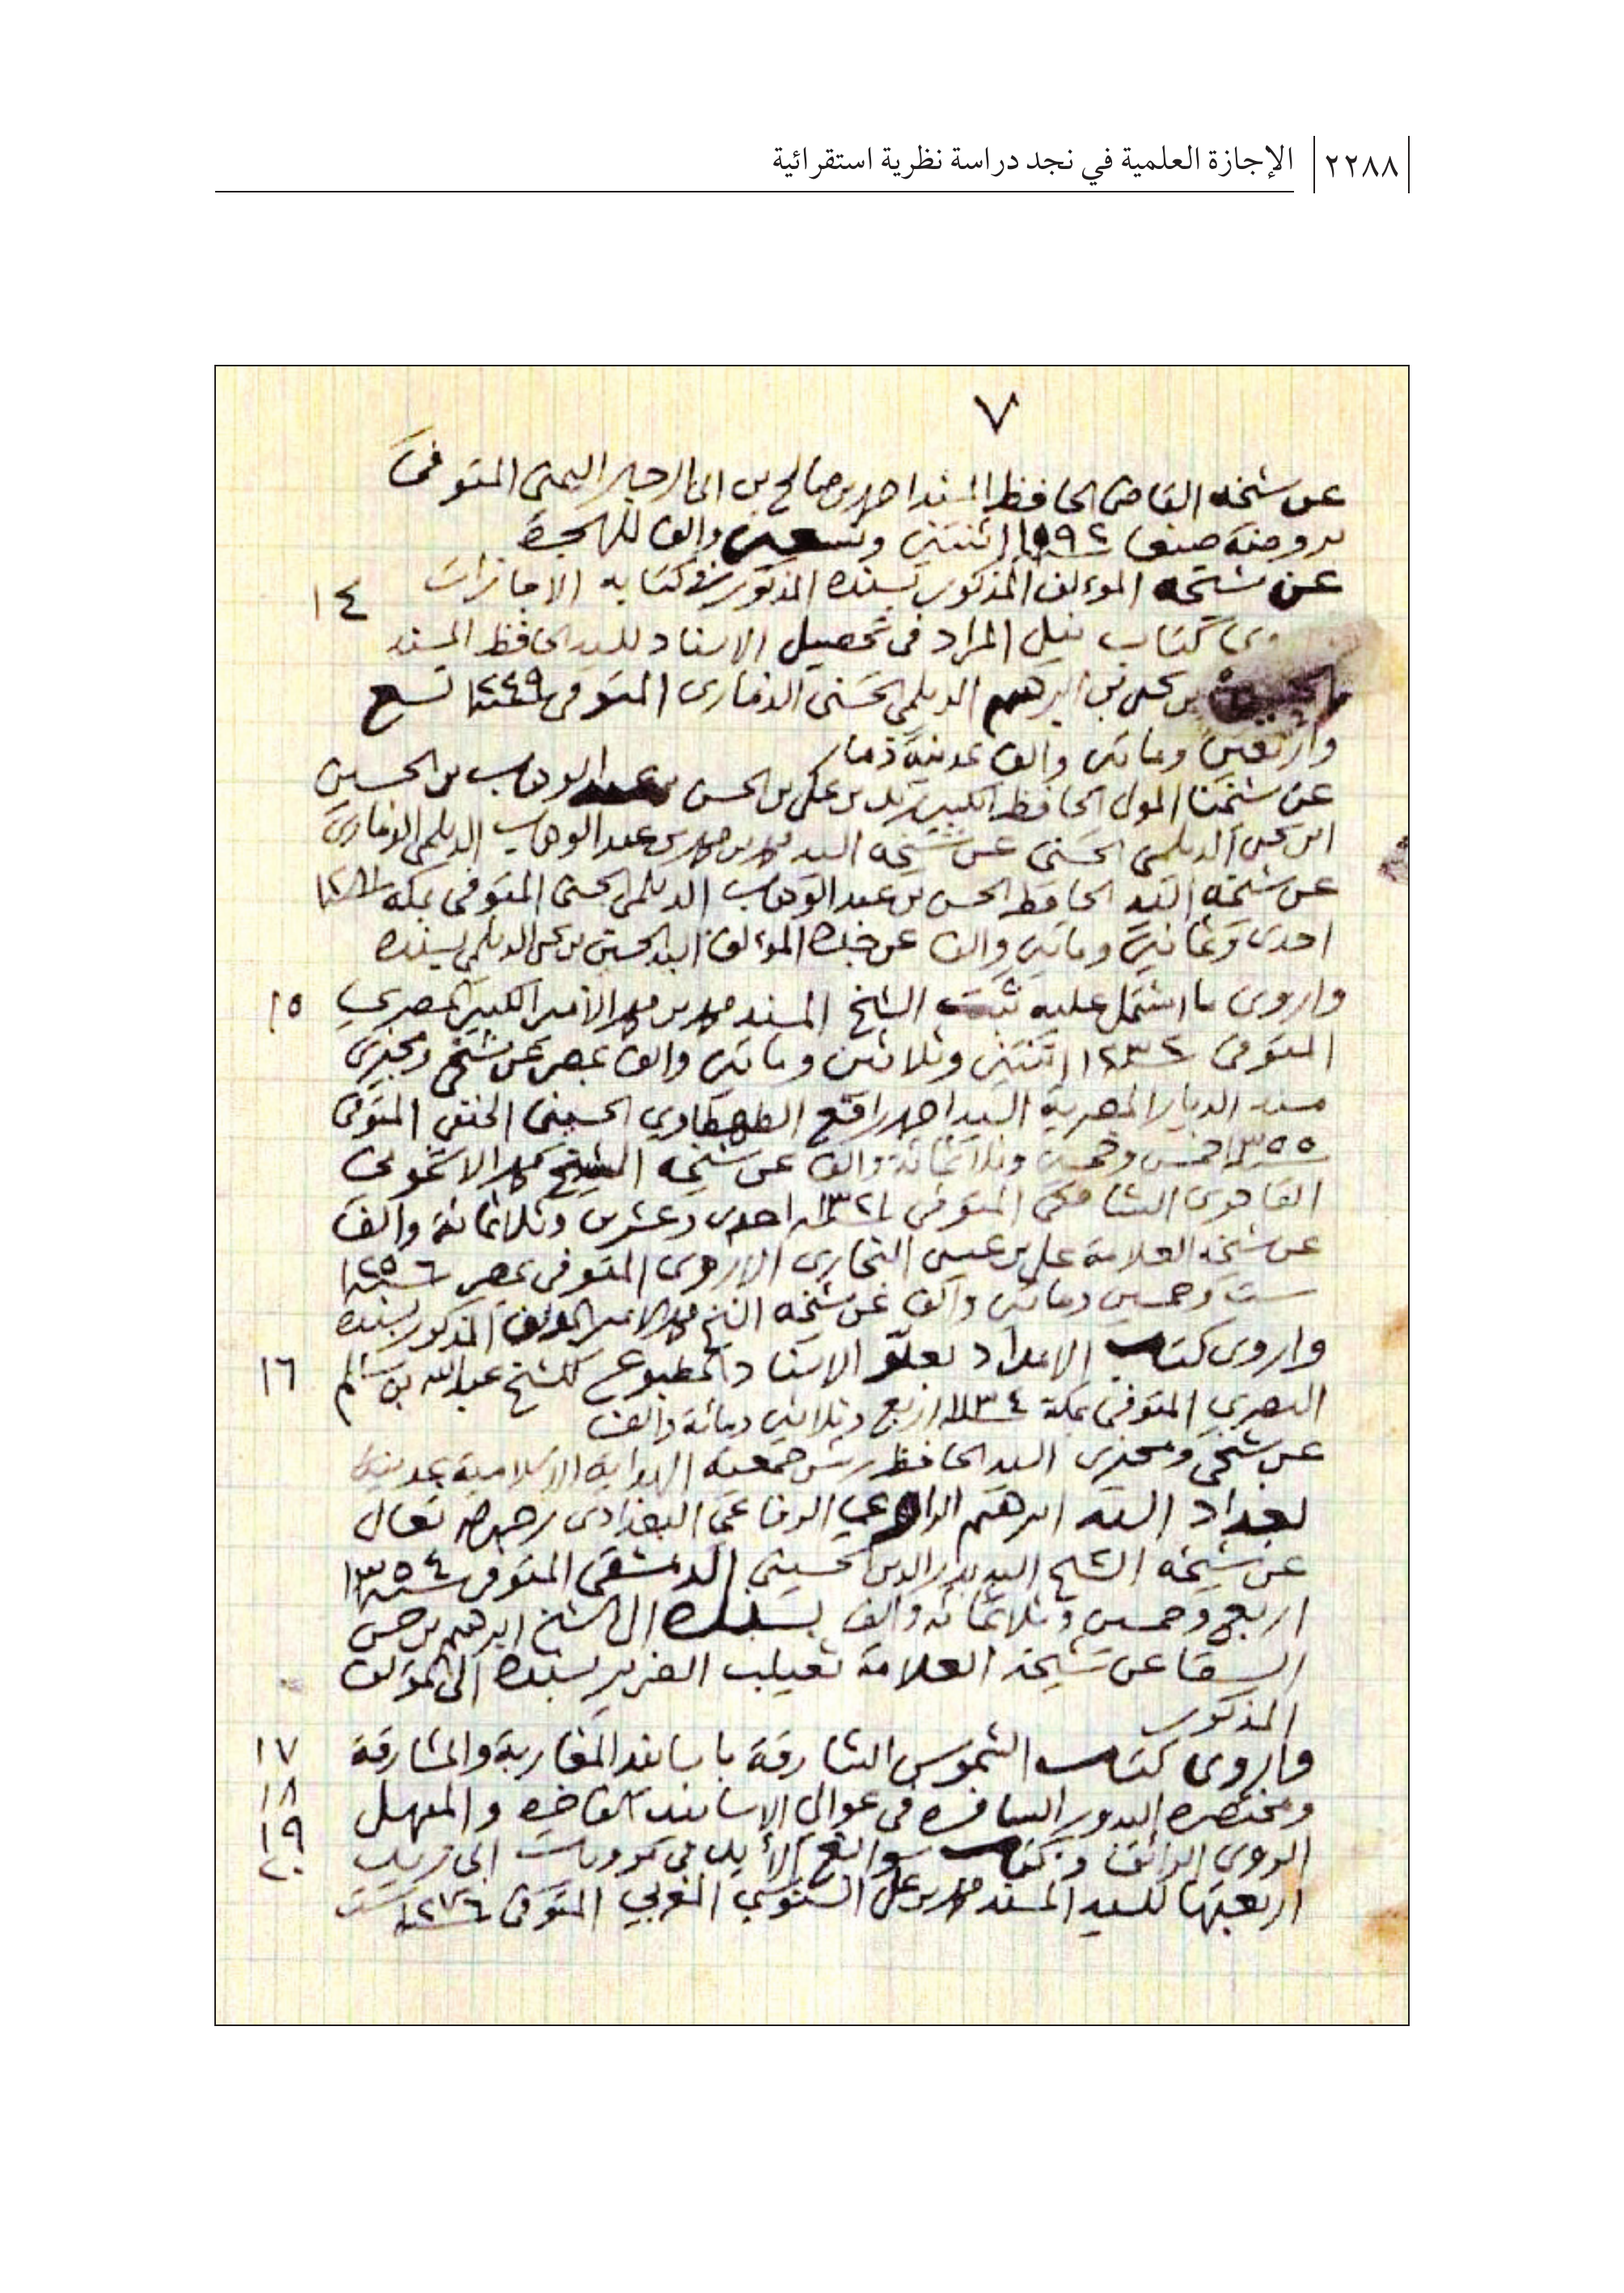 ٢٢٨٨ الإجازة العلمية في نجد دراسة نظرية استقرائية
٧
عن شيخه القاضي الحافظ المسند احمد بن صالح بن ابي الرجال اليمني المتوفى
بروضة صنعا ١٠٩٢ اثنتين وتسعين والف للهجرة
عن شيخه الموءلف المذكور بسنده المذكور في كتابه الاجازات
١٤
وى كتاب نيل المراد في تحصيل الاسناد للسيد الحافظ المسند
بن يحيى بن ابرهيم الديلمي الحسني الذماري المتوفى سنة ١٢٤٩ تسع
واربعين وماتين والف بمدينة ذمار
عن شيخنا المولى الحافظ الكبير زيد بن علي بن الحسن بن عبد الوهاب بن الحسين
ابن يحيى الديلمي الحسني عن شيخه السيد محمد بن محمد بن عبد الوهاب الديلمي الذماري
عن شيخه السيد الحافظ الحسن بن عبد الوهاب الديلمي الحسني المتوفى بمكة سنة ١٢٨١
احدى وثمانين وماتين والف عن جده المؤلف السيد الحسين بن يحيى الديلمي بسنده
واروى ما اشتمل عليه ثبت الشيخ المسند محمد بن محمد الأمير الكبير المصري
١٥
المتوفى سنة ١٢٣٢ اثنتين وثلاثين وماتين والف بمصر عن شيخي ومجيزي
مسند الديار المصرية السيد احمد رافع الطهطاوي الحسيني الحنفي المتوفى
سنة ١٣٥٥ خمس وخمسين وثلاثمائة والف عن شيخه الشيخ محمد الاشموني
الشافعي المتوفى سنة ١٣٢١ احدى وعشرين وثلاثمائة والف
عن شيخه العلامة علي بن عيسى النجاري المتوفى بمصر سنة ١٢٥٦
ست وخمسين وماتين والف عن شيخه الشيخ محمد الامير المولف المذكور بسنده
واروى كتاب الامداد بعلو الاسناد المطبوع للشيخ عبد الله بن سالم
١٦
البصري المتوفى بمكة سنة ١١٣٤ اربع وثلاثين ومائة والف
عن شيخي ومجيزي السيد الحافظ رئيس جمعية الهداية الاسلامية بمدينة
بغداد السيد ابرهيم الراوي الرفاعي البغدادي رحمه الله تعالى
عن شيخه الشيخ السيد بدر الدين الحسيني الدمشقي المتوفى سنة ١٣٥٤
اربع وخمسين وثلاثمائة والف بسنده الى الشيخ ابرهيم بن حسن
السقا عن شيخه العلامة ثعيلب الضرير بسنده الى المؤلف
المذكور
واروى كتاب الشموس الشارقة باسانيد المغاربة والمشارقة
١٧
ومختصره البدور السافره في عوالي الاسانيد الفاخره والمنهل
١٨
١٩
الروي الرائق وكتاب سوابغ الأيد في مرويات ابى زيد
٢٠
اربعتها للسيد المسند محمد بن علي السنوسي المغربي المتوفى سنة ١٢٧٦ ست